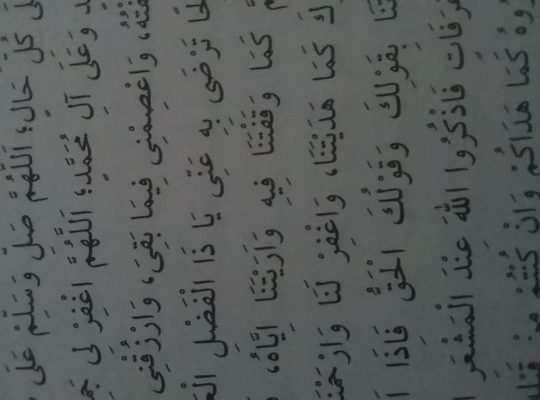 كُلِّ حَالٍ؛ اَللّٰهُمَّ صَلِّ وَسَلِّمْ عَلَى
وَعَلَى آلِ مُحَمَّدٍ؛ اَللّٰهُمَّ اغْفِرْ لِى
وَاعْصِمْنِى فِيمَا بَقِىَ، وَارْزُقْنِى
تَرْضَى بِهِ عَنِّى يَا ذَا الْفَضْلِ
كَمَا وَقَفْتَنَا فِيهِ وَاَرَيْتَنَا اِيَّاهُ،
كَمَا هَدَيْتَنَا، وَاغْفِرْ لَنَا وَارْحَمْنَا
بِقَوْلِكَ وَقَوْلُكَ الْحَقُّ فَاِذَا
عَرَفَاتٍ فَاذْكُرُوا اللهَ عِنْدَ الْمَشْعَرِ
كَمَا هَدَاكُمْ وَاِنْ كُنْتُمْ مِنْ